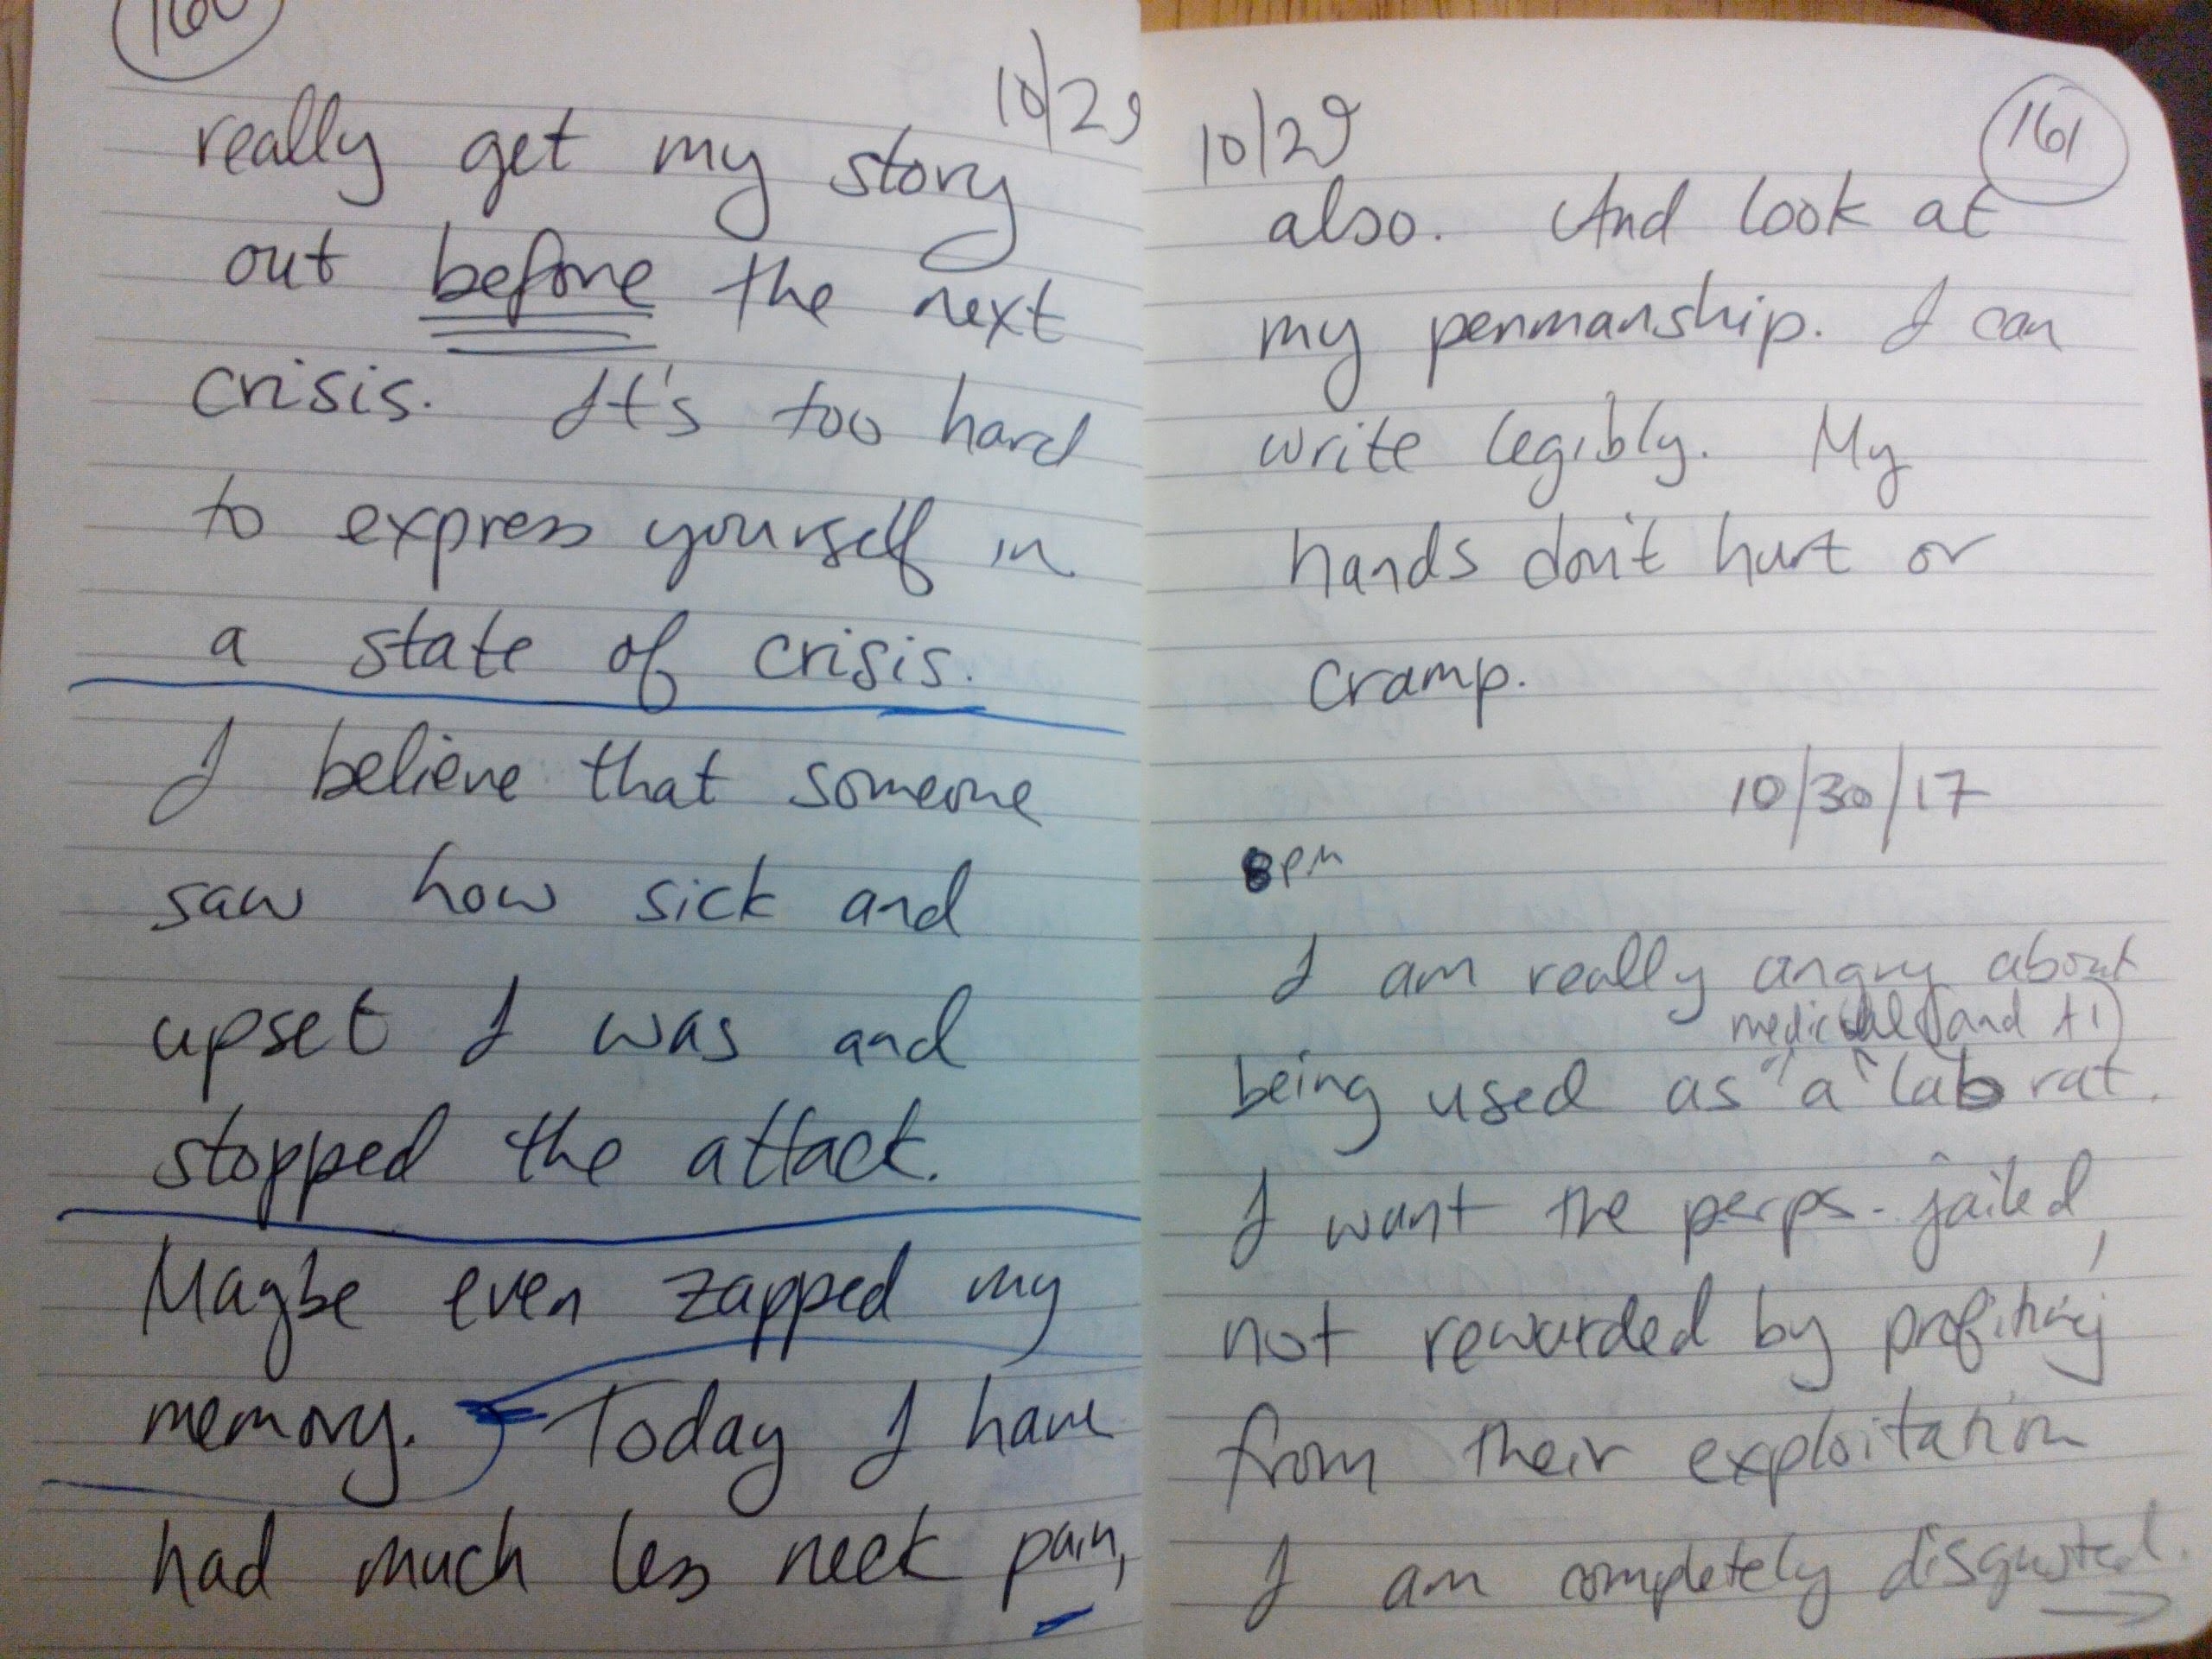 160
10/29
really get my story
out before the next
crisis. It's too hard
to express yourself in
a state of crisis.
I believe that someone
saw how sick and
upset I was and
stopped the attack.
Maybe even zapped my
memory. Today I have
had much less neck pain,
10/29
161
also. And look at
my penmanship. I can
write legibly. My
hands don't hurt or
cramp.
10/30/17
8pm
I am really angry about
medical (and +1)
being used as a lab rat.
I want the perps jailed,
not rewarded by profiting
from their exploitation
I am completely disgusted.